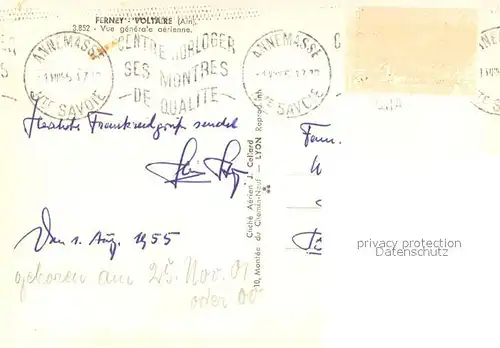 FERNEY - VOLTAIRE (Ain)
3.852 - Vue générale aérienne.
ANNEMASSE
Hte SAVOIE
CENTRE HORLOGER
SES MONTRES
DE QUALITÉ
ANNEMASSE
Hte SAVOIE
Herzliche Frankreichgrüße sendet
Den 1. Aug. 1955
geboren am 25. Nov. 01
oder 00
Cliché Aérien J. Cellard
10, Montée du Chemin-Neuf - LYON Reprod. inh
Fam.
privacy protection
Datenschutz